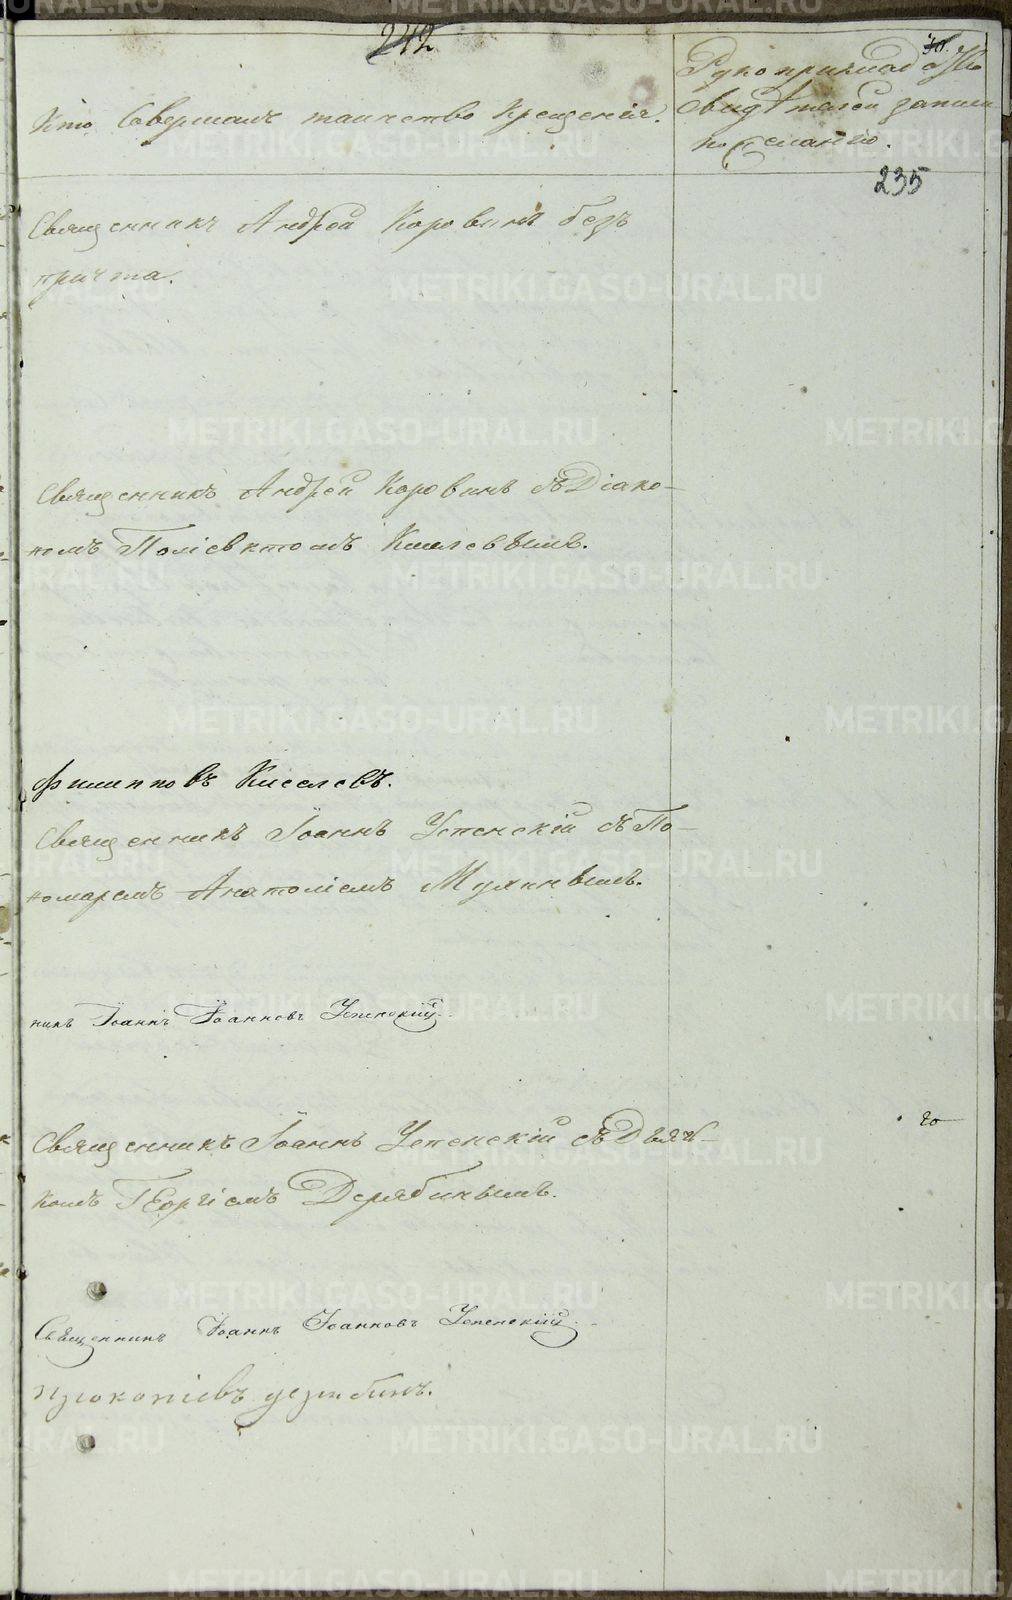 242
30.
Кто Совершалъ таинство Крещенія.
Рукоприкладство
Свидѣтелей записи
по желанію.
235
Священникъ Андрей Коровинъ безъ
причта.
Священникъ Андрей Коровинъ съ Діако-
номъ Поліевктомъ Киселевымъ.
Филипповъ Киселевъ.
Священникъ Іоаннъ Успенскій съ По-
номаремъ Анатоліемъ
никъ Іоаннъ Іоанновъ Успенскій.
Священникъ Іоаннъ Успенскій съ Дьяч-
комъ Георгіемъ Дерябинымъ.
Священникъ Іоаннъ Іоанновъ Успенскій.
Прокопіевъ
METRIKI.GASO-URAL.RU